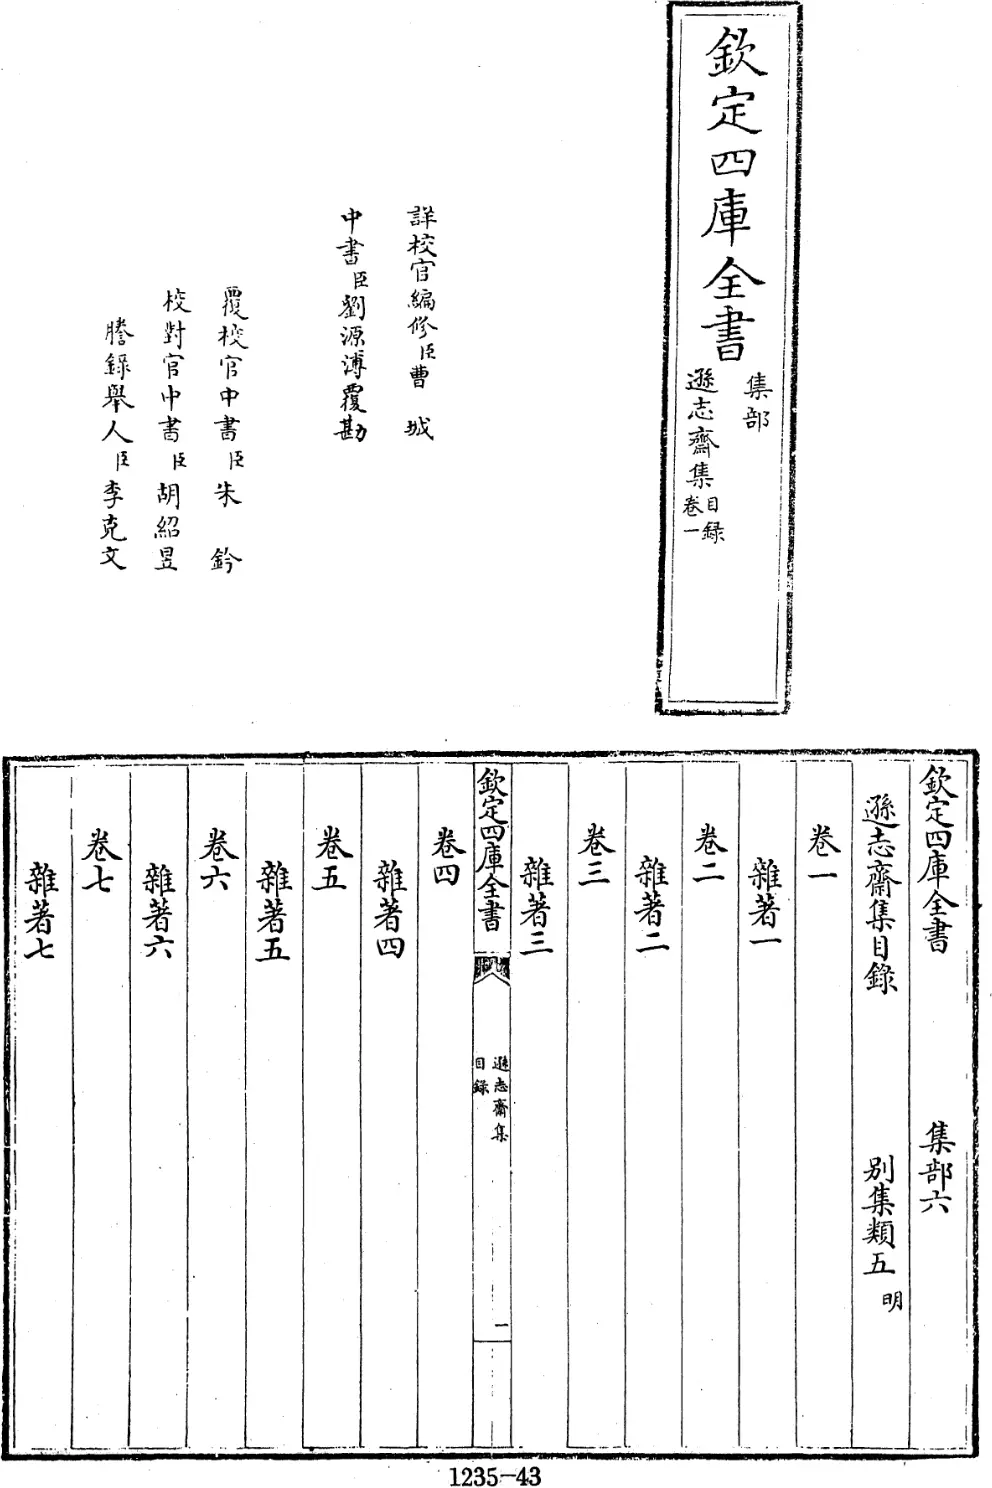 欽定四庫全書
集部
遜志齋集
目録
卷一
詳校官編修臣曹城
中書臣劉源溥覆勘
覆校官中書臣朱鈐
校對官中書臣胡紹昱
謄錄舉人臣李克文
欽定四庫全書 集部六
遜志齋集目錄 别集類五 明
卷一
雜著一
卷二
雜著二
卷三
雜著三
欽定四庫全書
遜志齋集
目録
一
卷四
雜著四
卷五
雜著五
卷六
雜著六
卷七
雜著七
1235-43